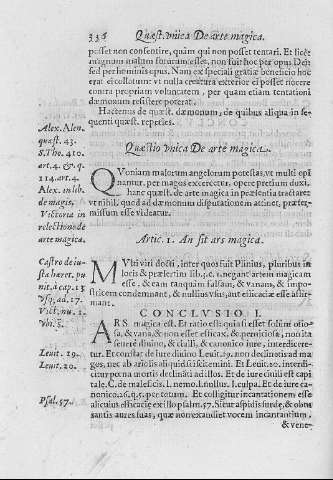 336 Quæst. vnica De arte magica.
posset non consentire, quàm qui non posset tentari. Et licèt
magnum malum futurum esset, non fuit hoc per opus Dei
sed per hominis opus. Nam ex speciali gratiæ beneficio hoc
erat ei collatum: vt nulla creatura exterior ei posset nocere
contra propriam voluntatem, per quam etiam tentationi
dæmonum resistere poterat.
Hactenus de quæst. dæmonum, de quibus aliqua in se-
quenti quæst. reperies.
Alex. Alen.
quæst. 43.
S. Tho. 410.
art. 4. & q.
114. art. 4.
Alex. in lib.
de magis,
Victoria in
relectione de
arte magica.
Quæstio vnica De arte magica.
QVoniam malorum angelorum potestas, vt multi opi
nantur, per magos exercetur, opere pretium duxi.
hanc quæst. de arte magica in præsentia tractare
vt nihil, quod ad dæmonum disputationem attinet, præter-
missum esse videatur.
Artic. 1. An sit ars magica.
Castro de iu-
sta hæret. pu
nit. à cap. 13
vsq; ad. 17.
Vict. nu. 1.
vbi. s.
MVlti viri docti, inter quos fuit Plinius, pluribus in
locis & præsertim lib. 30. c. 1. negant artem magicam
esse, & eam tanquam falsam, & vanam, & impo-
stricem condemnant, & nullius vsus, aut efficaciæ esse affir
mant.
CONCLVSIO I.
ARS magica est. Et ratio est: quia si esset solùm otio-
sa, & vana, & non esset efficax, & perniciosa, non ita
seuerè diuino, & ciuili, & canonico iure, interdicere-
tur. Et constat de iure diuino Leuit. 19. non declinetis ad ma
gos, nec ab ariolis aliquid sciscitemini. Et Leuit. 20. interdi-
citur pœna mortis declinati ad illos. Et de iure ciuili est capi
tale, C. de maleficis. l. nemo. l. nullus. l. culpa. Et de iure ca-
nonico. 26. q. 5. per totum. Et colligitur incantationem esse
alicuius efficaciæ ex illo psalm. 57. Sicut aspidis surdæ, & obtu
rantis aures suas, quæ non exaudiet vocem incantantium,
& vene-
Leuit. 19.
Leuit. 20.
Psal. 57.